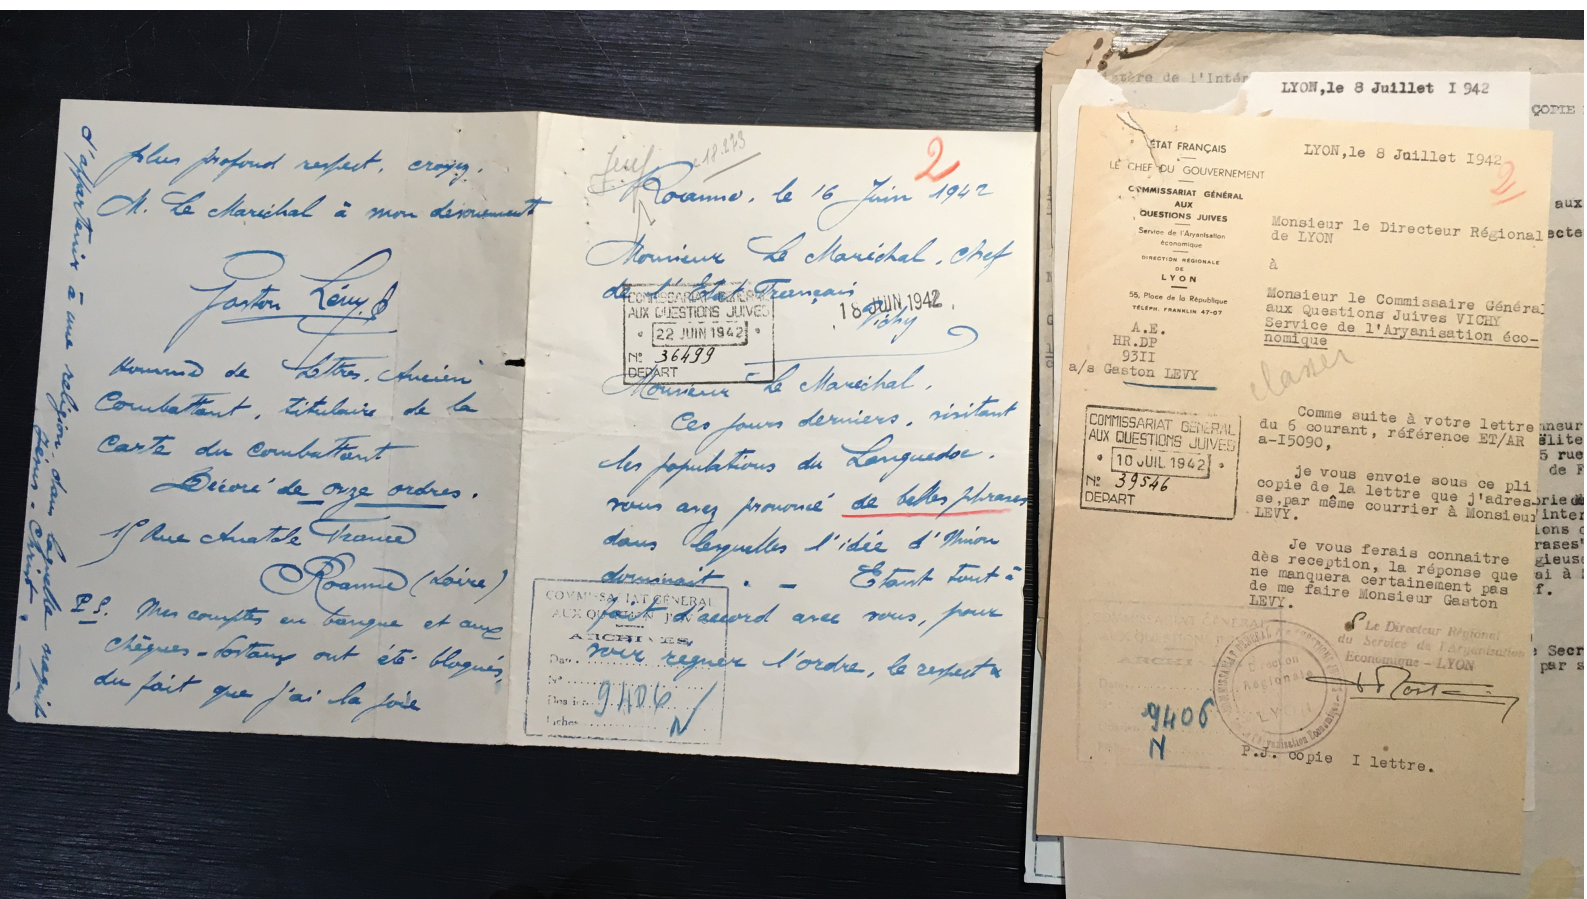 plus profond respect, croyez,
M. Le Maréchal à mon dévouement
Gaston Lévy
Homme de Lettres, Ancien
Combattant, titulaire de la
Carte du Combattant
Décoré de onze ordres.
15 Rue Anatole France
Roanne (Loire)
P.S. Mes comptes en banque et aux
chèques-Postaux ont été bloqués,
du fait que j'ai la joie
d'appartenir à une religion, dans laquelle naquit
Jésus-Christ.
Juif
18.273
2
Roanne, le 16 Juin 1942
Monsieur Le Maréchal, chef
de l'Etat Français
Vichy
18 JUIN 1942
COMMISSARIAT GENERAL
AUX QUESTIONS JUIVES
22 JUIN 1942
N° 36499
DEPART
Monsieur Le Maréchal,
Ces jours derniers, visitant
les populations du Languedoc,
vous avez prononcé de belles phrases
dans lesquelles l'idée d'Union
dominait. - Etant tout à
fait d'accord avec vous, pour
voir régner l'ordre, le respect
COMMISSARIAT GENERAL
AUX QUESTION JUIVES
ARCHIVES
Date
N°
Dossier 9406
Fiches N
istère de l'Intér
LYON,le 8 Juillet I942
COPIE
ETAT FRANÇAIS
LE CHEF DU GOUVERNEMENT
COMMISSARIAT GÉNÉRAL
AUX
QUESTIONS JUIVES
Service de l'Aryanisation
économique
DIRECTION RÉGIONALE
DE
LYON
55, Place de la République
TÉLÉPH. FRANKLIN 47-07
A.E.
HR.DP
93II
a/s Gaston LEVY
LYON,le 8 Juillet I942
2
Monsieur le Directeur Régional
de LYON
à
Monsieur le Commissaire Général
aux Questions Juives VICHY
Service de l'Aryanisation éco-
nomique
classer
COMMISSARIAT GENERAL
AUX QUESTIONS JUIVES
10 JUIL 1942
N° 39546
DEPART
Comme suite à votre lettre
du 6 courant, référence ET/AR
a-I5090,
je vous envoie sous ce pli
copie de la lettre que j'adres-
se,par même courrier à Monsieur
LEVY.
Je vous ferais connaitre
dès reception, la réponse que
ne manquera certainement pas
de me faire Monsieur Gaston
LEVY.
Le Directeur Régional
du Service de l'Aryanisation
Economique - LYON
Direction
Régionale
LYON
9406
N
P.J. copie I lettre.
aux
5 rue
de F
gieuse
ai à
f.
Secr
par s